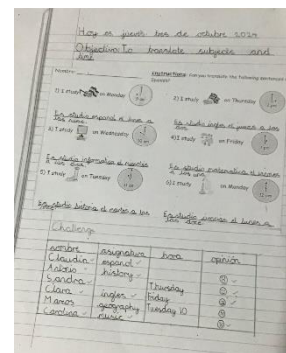 Hoy es jueves tres de octubre 2024
Objectivo: To translate subjects and
time
Instructions: Can you translate the following sentences
1) I study on Monday
2) I study on Thursday
Yo estudio español el lunes a
Yo estudio inglés el jueves a las
3) I study on Wednesday
4) I study on Friday
Yo estudio informática el miércoles
Yo estudio matemática el viernes
5) I study on Tuesday
6) I study on Monday
estudio historia el martes a las
Yo estudio ciencias el lunes a
Challenge
nombre asignatura hora opinión
Claudia español
Antonio history
Sandra Thursday
Clara ingles Friday
Marcos geography Tuesday 10
Carolina music